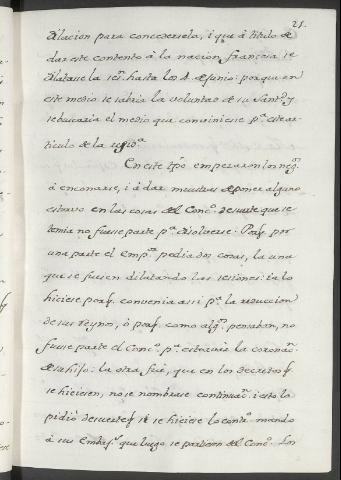 21.
dilacion para concedersela, i que á titulo de
dar este contento á la nacion francesa se
dilatasse la ses.n hasta los 4. de Junio: porque en
este medio se sabria la voluntad de su Sant.d y
se buscaria el medio que conviniesse p.a este ar-
ticulo de la
En este tpō. empezaron los neg.s
á enconarse, i á dar muestras de poner alguno
estorvo en las cosas del Conc.o de suerte que se
temia no fuesse parte p.a disolverse. Porq̃ por
una parte el Emp.or pedia dos cosas, la una
que se fuesen dilatando las sesiones: ia lo
hiciese porq̃ convenia assi p.a la reduccion
de sus Reynos, ó porq̃ como alg.s pensaban, no
fuesse parte el Conc.o p.a estorvar la coronac.n
de su hijo: la otra fué, que en los decretos q̃
se hiciesen, no se nombrase continuac.n i esto lo
pidió de suerte q̃ si se hiciese lo cont.o mandó
á sus Embaj.s que luego se partiesen del Conc.o Los